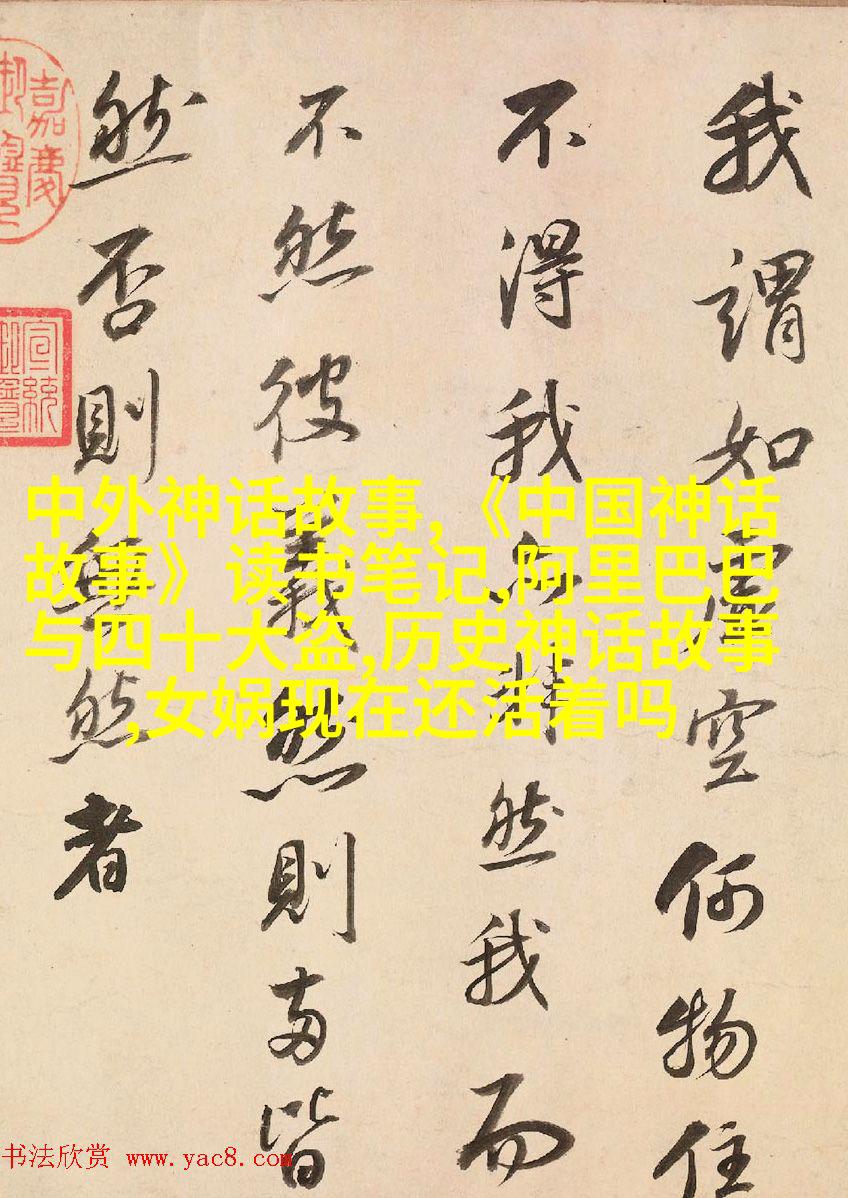 我謂如虛空何物住
不得我以非然我而
不然彼義然則兩皆
然否則無然者
嘉慶
宣統
中外神话故事,《中国神话
故事》读书笔记,阿里巴巴
与四十大盗,历史神话故事
,女娲现在还活着吗
书法欣赏 www.yac8.com